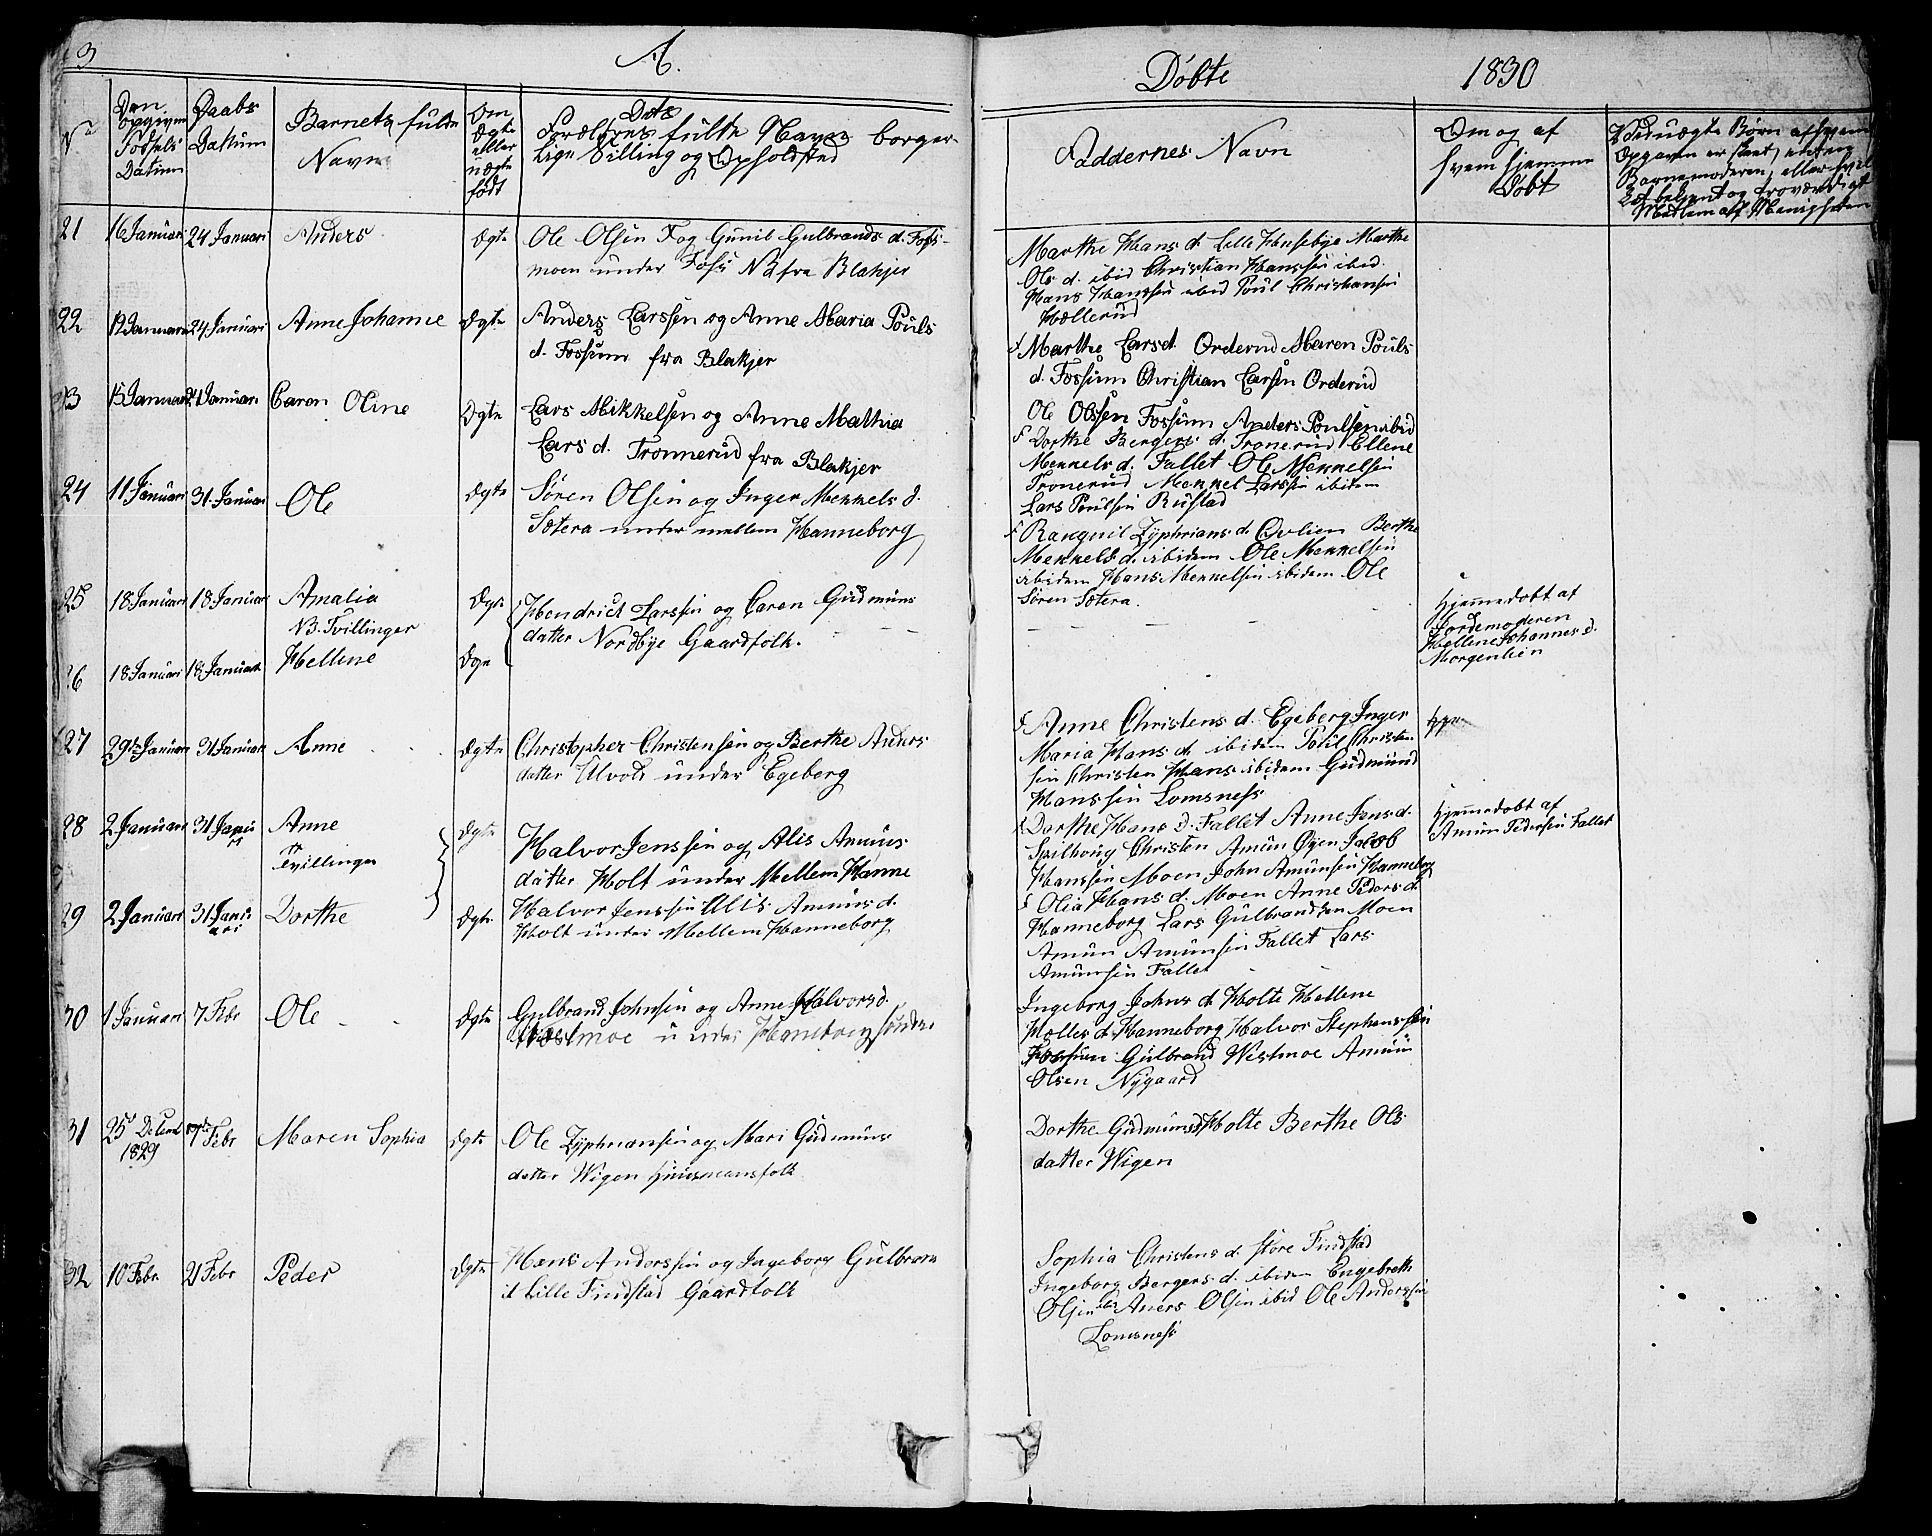 3 A. Døbte 1830
No Den opgivne Fødsels Datum
Daabs Datium
Barnets fulde Navn
Om Ægte eller uægte født
Dets Forældres fulde Navn borger-
lige Stilling og Opholdsted
Faddernes Navn
Om og af hvem hjemme Døbt
Ved uægte Børn af hvem
Opgaven er skeet, enten
Barnemoderen, eller
bekjent og troværdigt
Medlem af Menigheden
21 16 Januari 24 Januari Anders Ægte
Ole Olsen F og Gunil Gulbrands d. Foss-
moen under Foss No 2 fra Blakjer
Marthe Hans d. Lille Husebye Marthe
Ols d. ibid Christian Hanssen ibid.
Hans Hanssen ibid Poul Christiansen
Hellerud
22 Januari 24 Januari Anne Johanne Ægte
Anders Larssen og Anne Maria Pouls
d. Fossum fra Blakjer
Marthe Lars d. Orderud Maren Pouls
d. Fossum Christian Larsen Orderud
Ole Olssen Fossum Anders Poulsen ibid
23 15 Januari Januari Caren Oline Ægte
Lars Mikkelsen og Anne Mathia
Lars d. Tronnerud fra Blakjer
Dorthe Bergers d. Tronerud Ellene
Mekkels d. Fallet Ole Mekkelsen
Tronerud Mekkel Larssen ibidem
Lars Poulsen Rustad
24 11 Januari 31 Januari Ole Ægte
Søren Olsen og Inger Mekkels d.
Sotera under mellem Hanneborg
Ranguil Zyphrians d. Ovlien Berthe
Mekkels d. ibidem Ole Mekkelsen
ibidem Hans Mekkelsen ibidem Ole
Søren Sotera.
25 18 Januari 18 Januari Amalia Ægte
NB. Tvillinger
Hendrick Larssen og Caren Gudmuns
datter Nordbye Gaardfolk.
Hjemmedøbt af
Jordemoderen
Hellene Johannes d.
Morgenlien
26 18 Januari 18 Januari Hellene Ægte
27 29 Januari 31 Januari Anne Ægte
Christopher Christensen og Berthe Anders
datter Ulvols under Egeberg
Anne Christens d. Egeberg Inger
Maria Hans d. ibidem Poul Christen
sen Christen Hans ibidem Gudmund
Hanssen Lomsness
28 2 Januari 31 Janu Anne Ægte
Tvillinger
Halvor Jenssen og Alis Amuns
datter Holt under Mellem Hanne
Dorthe Hans d. Fallet Anne Jens d.
Spilhoug Christen Amun Øyen Jacob
Hanssen Moen John Amunsen Hanneborg
Hjemmedobt af
Amun Pedersen Fallet
29 2 Januari 31 Janu
ari Dorthe Ægte
Halvor Jenssen Alis Amuns d.
Holt under Mellem Hanneborg
Olia Hans d. Moen Anne Peders d.
Hanneborg Lars Gulbrandsen Moen
Amun Amunsen Fallet Lars
Amunsen Fallet
30 1 Januari 7 Febr Ole Ægte
Gulbrand Johnsen og Anne Halvors d.
Westmoe under Hanneborg søndre
Ingeborg Johns d. Holte Hellene
Holles d. Hanneborg Halvor Stephenssen
Gulbrand Westmoe Amun
Olsen Nygaard
31 25 Decemb 1829 7 Febr Maren Sophia Ægte
Ole Zyphriansen og Mari Gudmuns
datter Wigen Huusmansfolk
Dorthe Gudmunsd Holte Berthe Ols
datter Wigen
32 10 Febr 21 Febr Peder Ægte
Hans Anderssen og Ingeborg Gulbran
d Lille Findstad Gaardfolk
Sophia Christens d. store Findstad
Ingeborg Bergers d. ibidem Engebreth
Olsen ibid Aners Olsen ibid Ole Anderssen
Lomsness